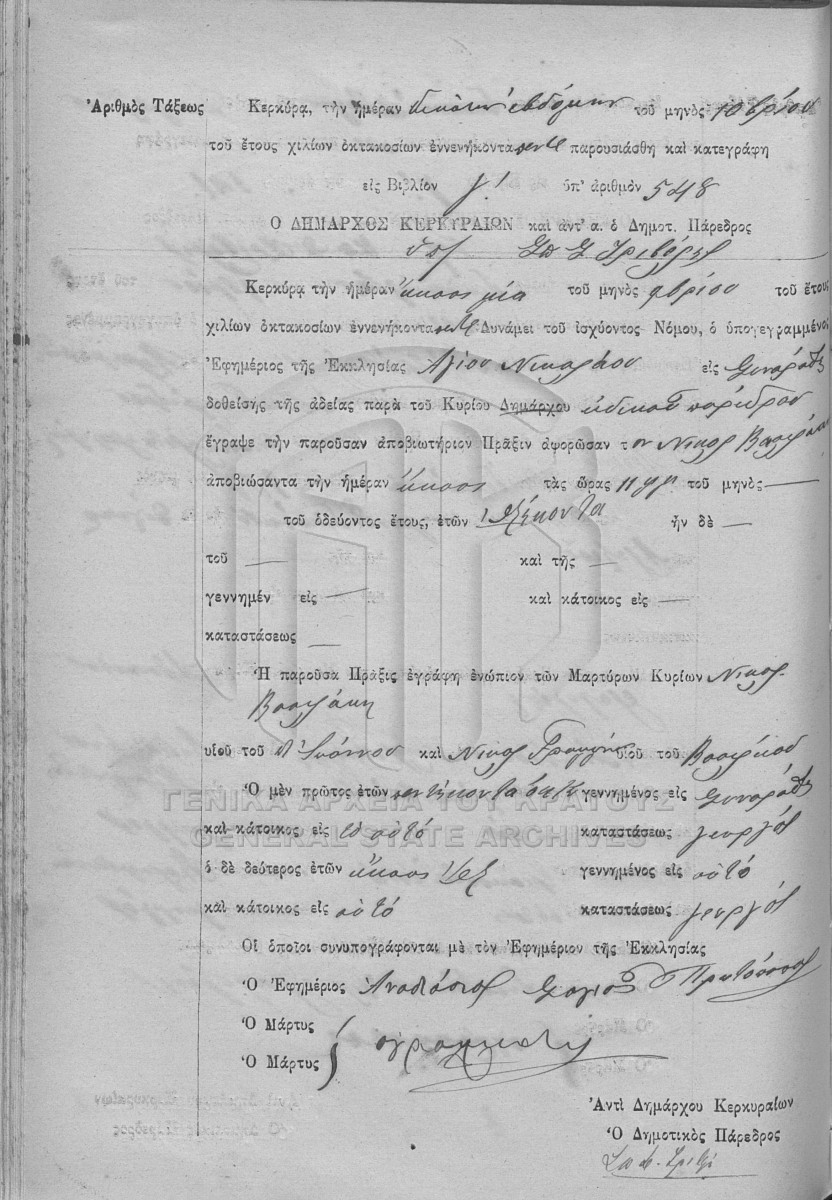 Ἀριθμὸς Τάξεως
Κερκύρᾳ, τὴν ἡμέραν δεκάτην ἑβδόμην τοῦ μηνὸς 10βρίου
τοῦ ἔτους χιλίων ὀκτακοσίων ἐννενήκοντα πέντε παρουσιάσθη καὶ κατεγράφη
εἰς Βιβλίον γ' ὑπ' ἀριθμὸν 548
Ο ΔΗΜΑΡΧΟΣ ΚΕΡΚΥΡΑΙΩΝ καὶ ἀντ' α. ὁ Δημοτ. Πάρεδρος
Κερκύρᾳ τὴν ἡμέραν εἰκοστὴ μία τοῦ μηνὸς 9βρίου τοῦ ἔτους
χιλίων ὀκτακοσίων ἐννενήκοντα πέντε Δυνάμει τοῦ ἰσχύοντος Νόμου, ὁ ὑπογεγραμμένος
Ἐφημέριος τῆς Ἐκκλησίας Ἁγίου Νικολάου εἰς Συναράδες
δοθείσης τῆς ἀδείας παρὰ τοῦ Κυρίου Δημάρχου εἰδικοῦ παρέδρου
ἔγραψε τὴν παροῦσαν ἀποβιωτήριον Πρᾶξιν ἀφορῶσαν τον Νικολ
ἀποβιώσαντα τὴν ἡμέραν τὰς ὥρας 11 τοῦ μηνὸς —
τοῦ ὁδεύοντος ἔτους, ἐτῶν ἑξήκοντα ἦν δὲ —
τοῦ — καὶ τῆς —
γεννημέν εἰς — καὶ κάτοικος εἰς —
καταστάσεως —
Ἡ παροῦσα Πρᾶξις ἐγράφη ἐνώπιον τῶν Μαρτύρων Κυρίων Νικολ.
υἱοῦ τοῦ καὶ Νικολ υἱοῦ τοῦ
Ὁ μὲν πρῶτος ἐτῶν πεντήκοντα ὀκτώ γεννημένος εἰς Συναράδες
καὶ κάτοικος εἰς τὸ αὐτό καταστάσεως γεωργός
ὁ δὲ δεύτερος ἐτῶν εἴκοσι ἕξ γεννημένος εἰς αὐτό
καὶ κάτοικος εἰς αὐτό καταστάσεως γεωργός
Οἱ ὁποῖοι συνυπογράφονται μὲ τὸν Ἐφημέριον τῆς Ἐκκλησίας
Ὁ Ἐφημέριος Ἀναστάσιος
Ὁ Μάρτυς
Ὁ Μάρτυς ἀγράμματοι
Ἀντὶ Δημάρχου Κερκυραίων
Ὁ Δημοτικὸς Πάρεδρος
ΓΕΝΙΚΑ ΑΡΧΕΙΑ ΤΟΥ ΚΡΑΤΟΥΣ
GENERAL STATE ARCHIVES